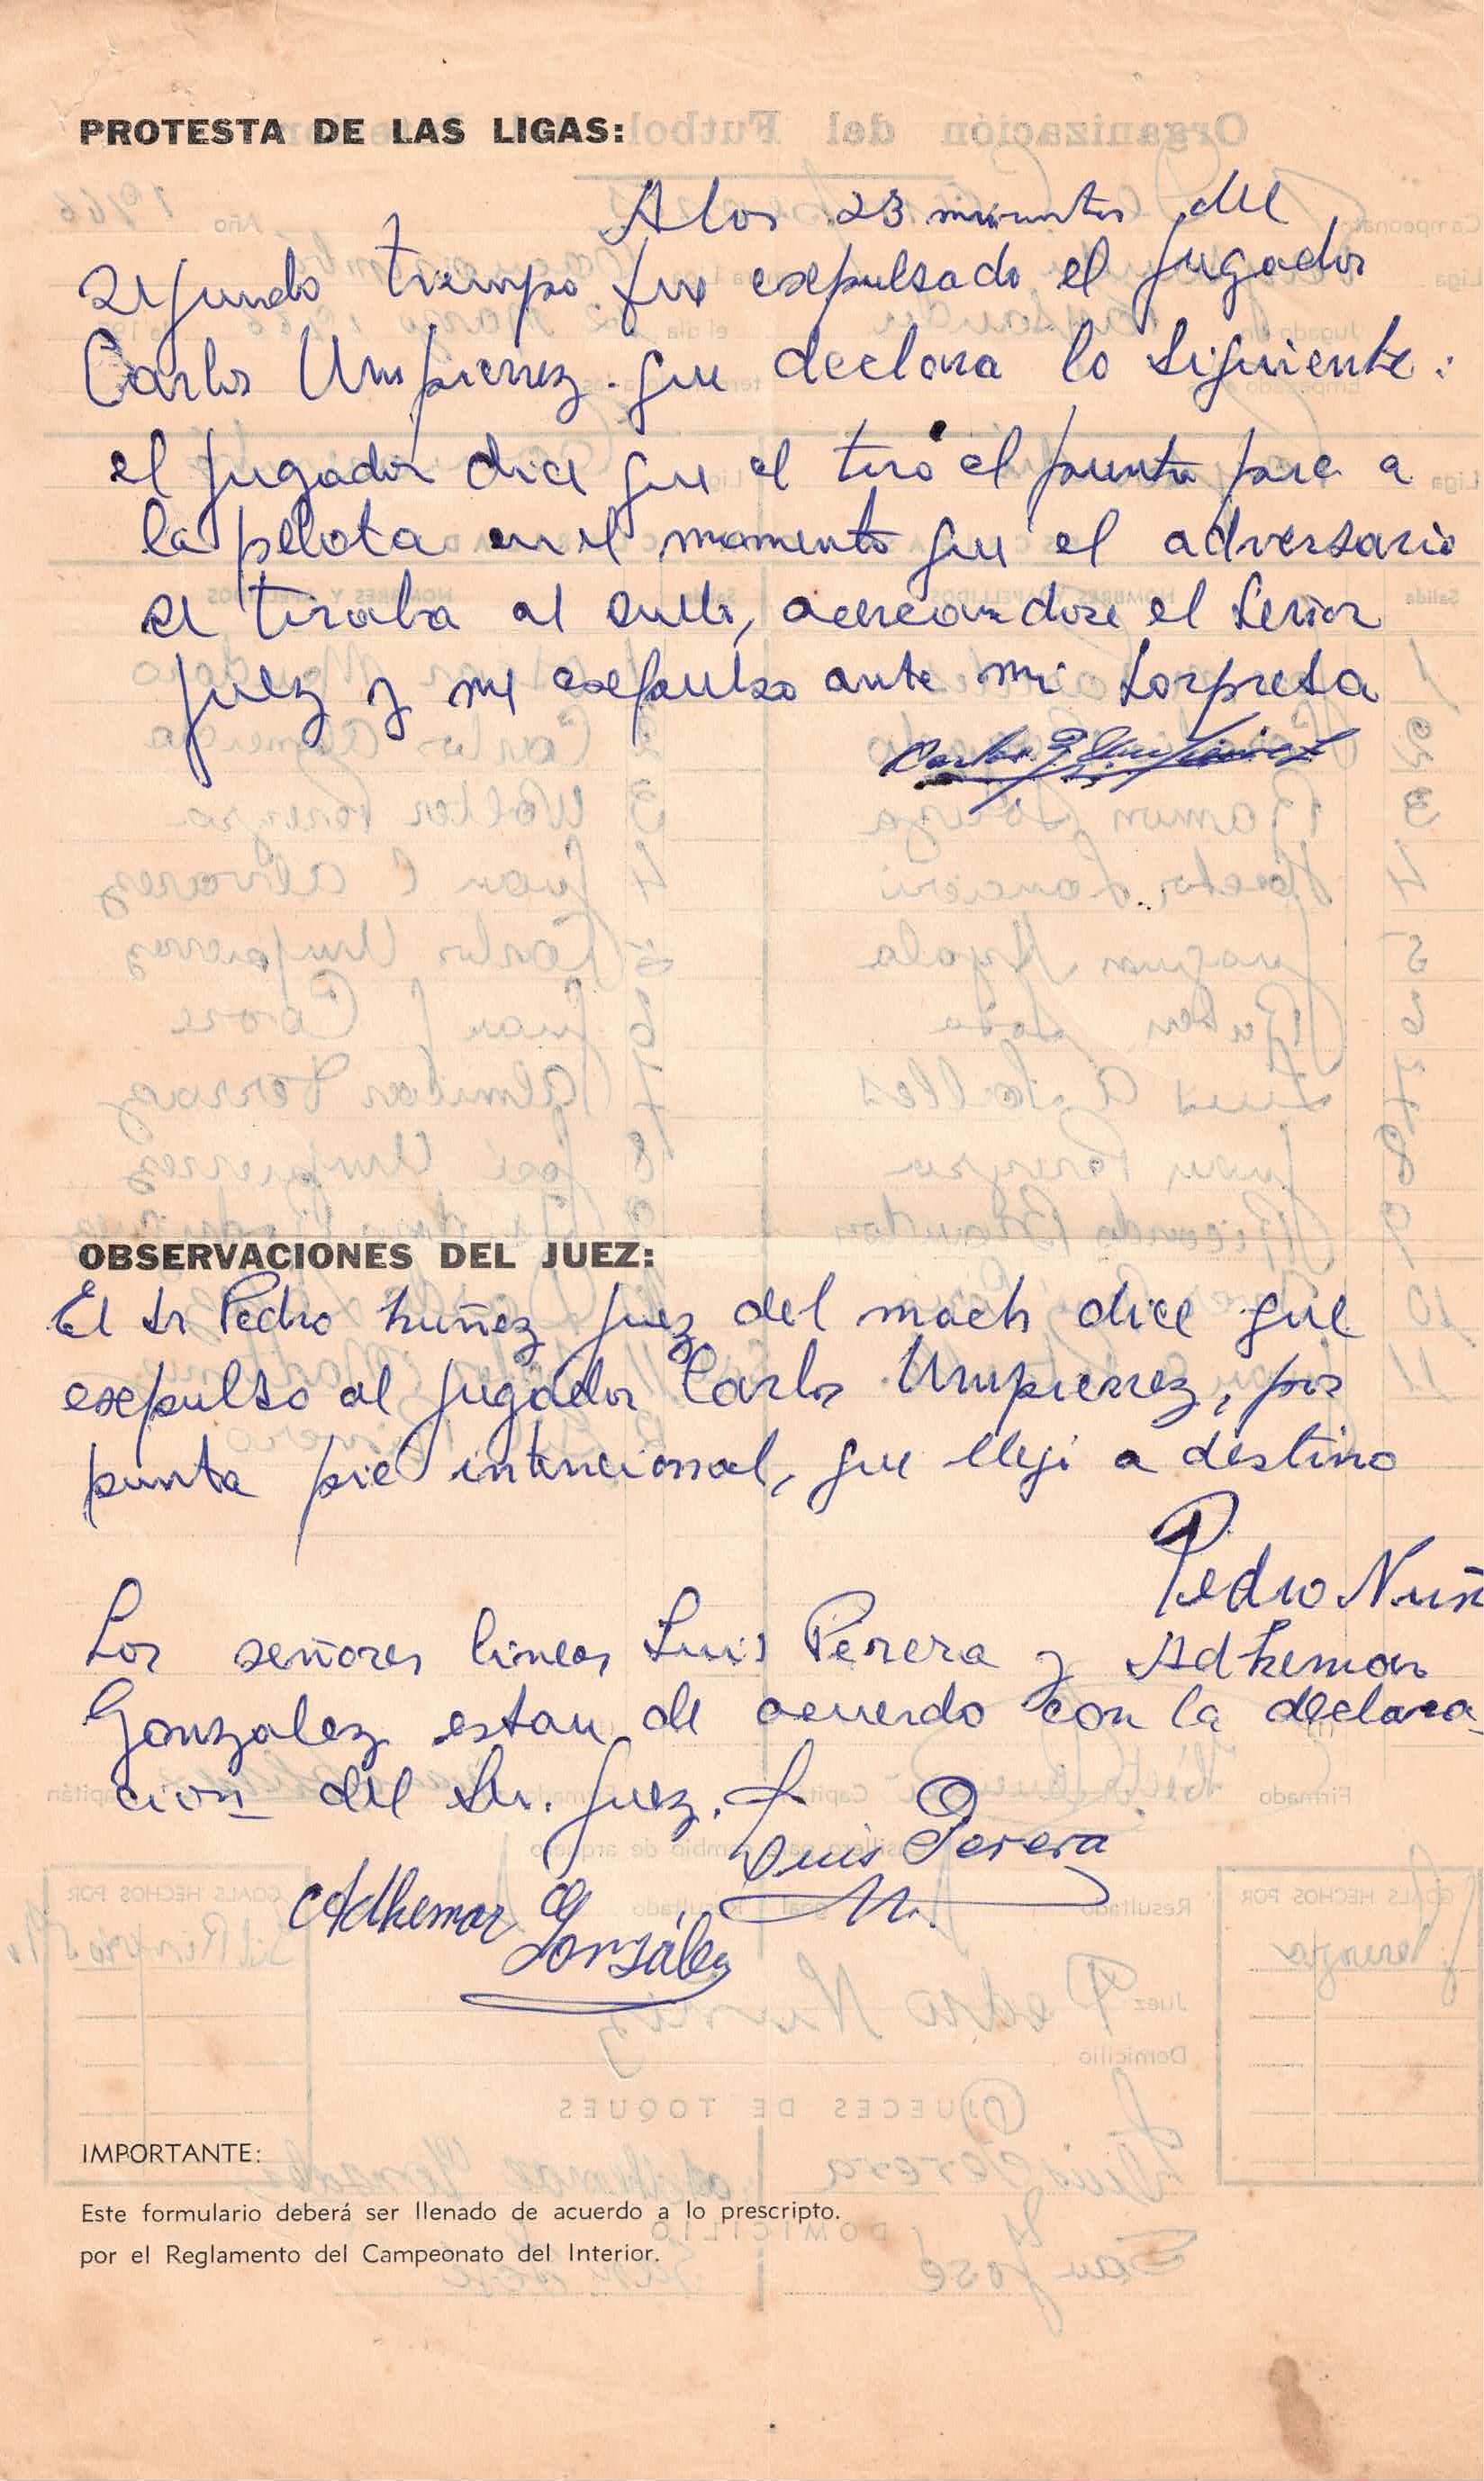 PROTESTA DE LAS LIGAS:
A los 23 minuntos del
segundo tiempo fue exepulsado el jugador
Carlos Umpierrez. que declara lo siguiente:
el jugador dice que el tiro el punta pie a
la pelota en el momento que el adversario
se tiraba al suelo, acercandose el señor
juez y me exepulso ante mi sorpresa
OBSERVACIONES DEL JUEZ:
El sr Pedro Nuñez juez del mach dice que
exepulso al jugador Carlos Umpierrez, por
punta pie intencional, que llego a destino
Pedro Nuñ
Los señores lineas Luis Perera y Adhemar
Gonzalez estan de acuerdo con la declara
cion del Sr. Juez.
Luis Perera
Adhemar González
IMPORTANTE:
Este formulario deberá ser llenado de acuerdo a lo prescripto.
por el Reglamento del Campeonato del Interior.